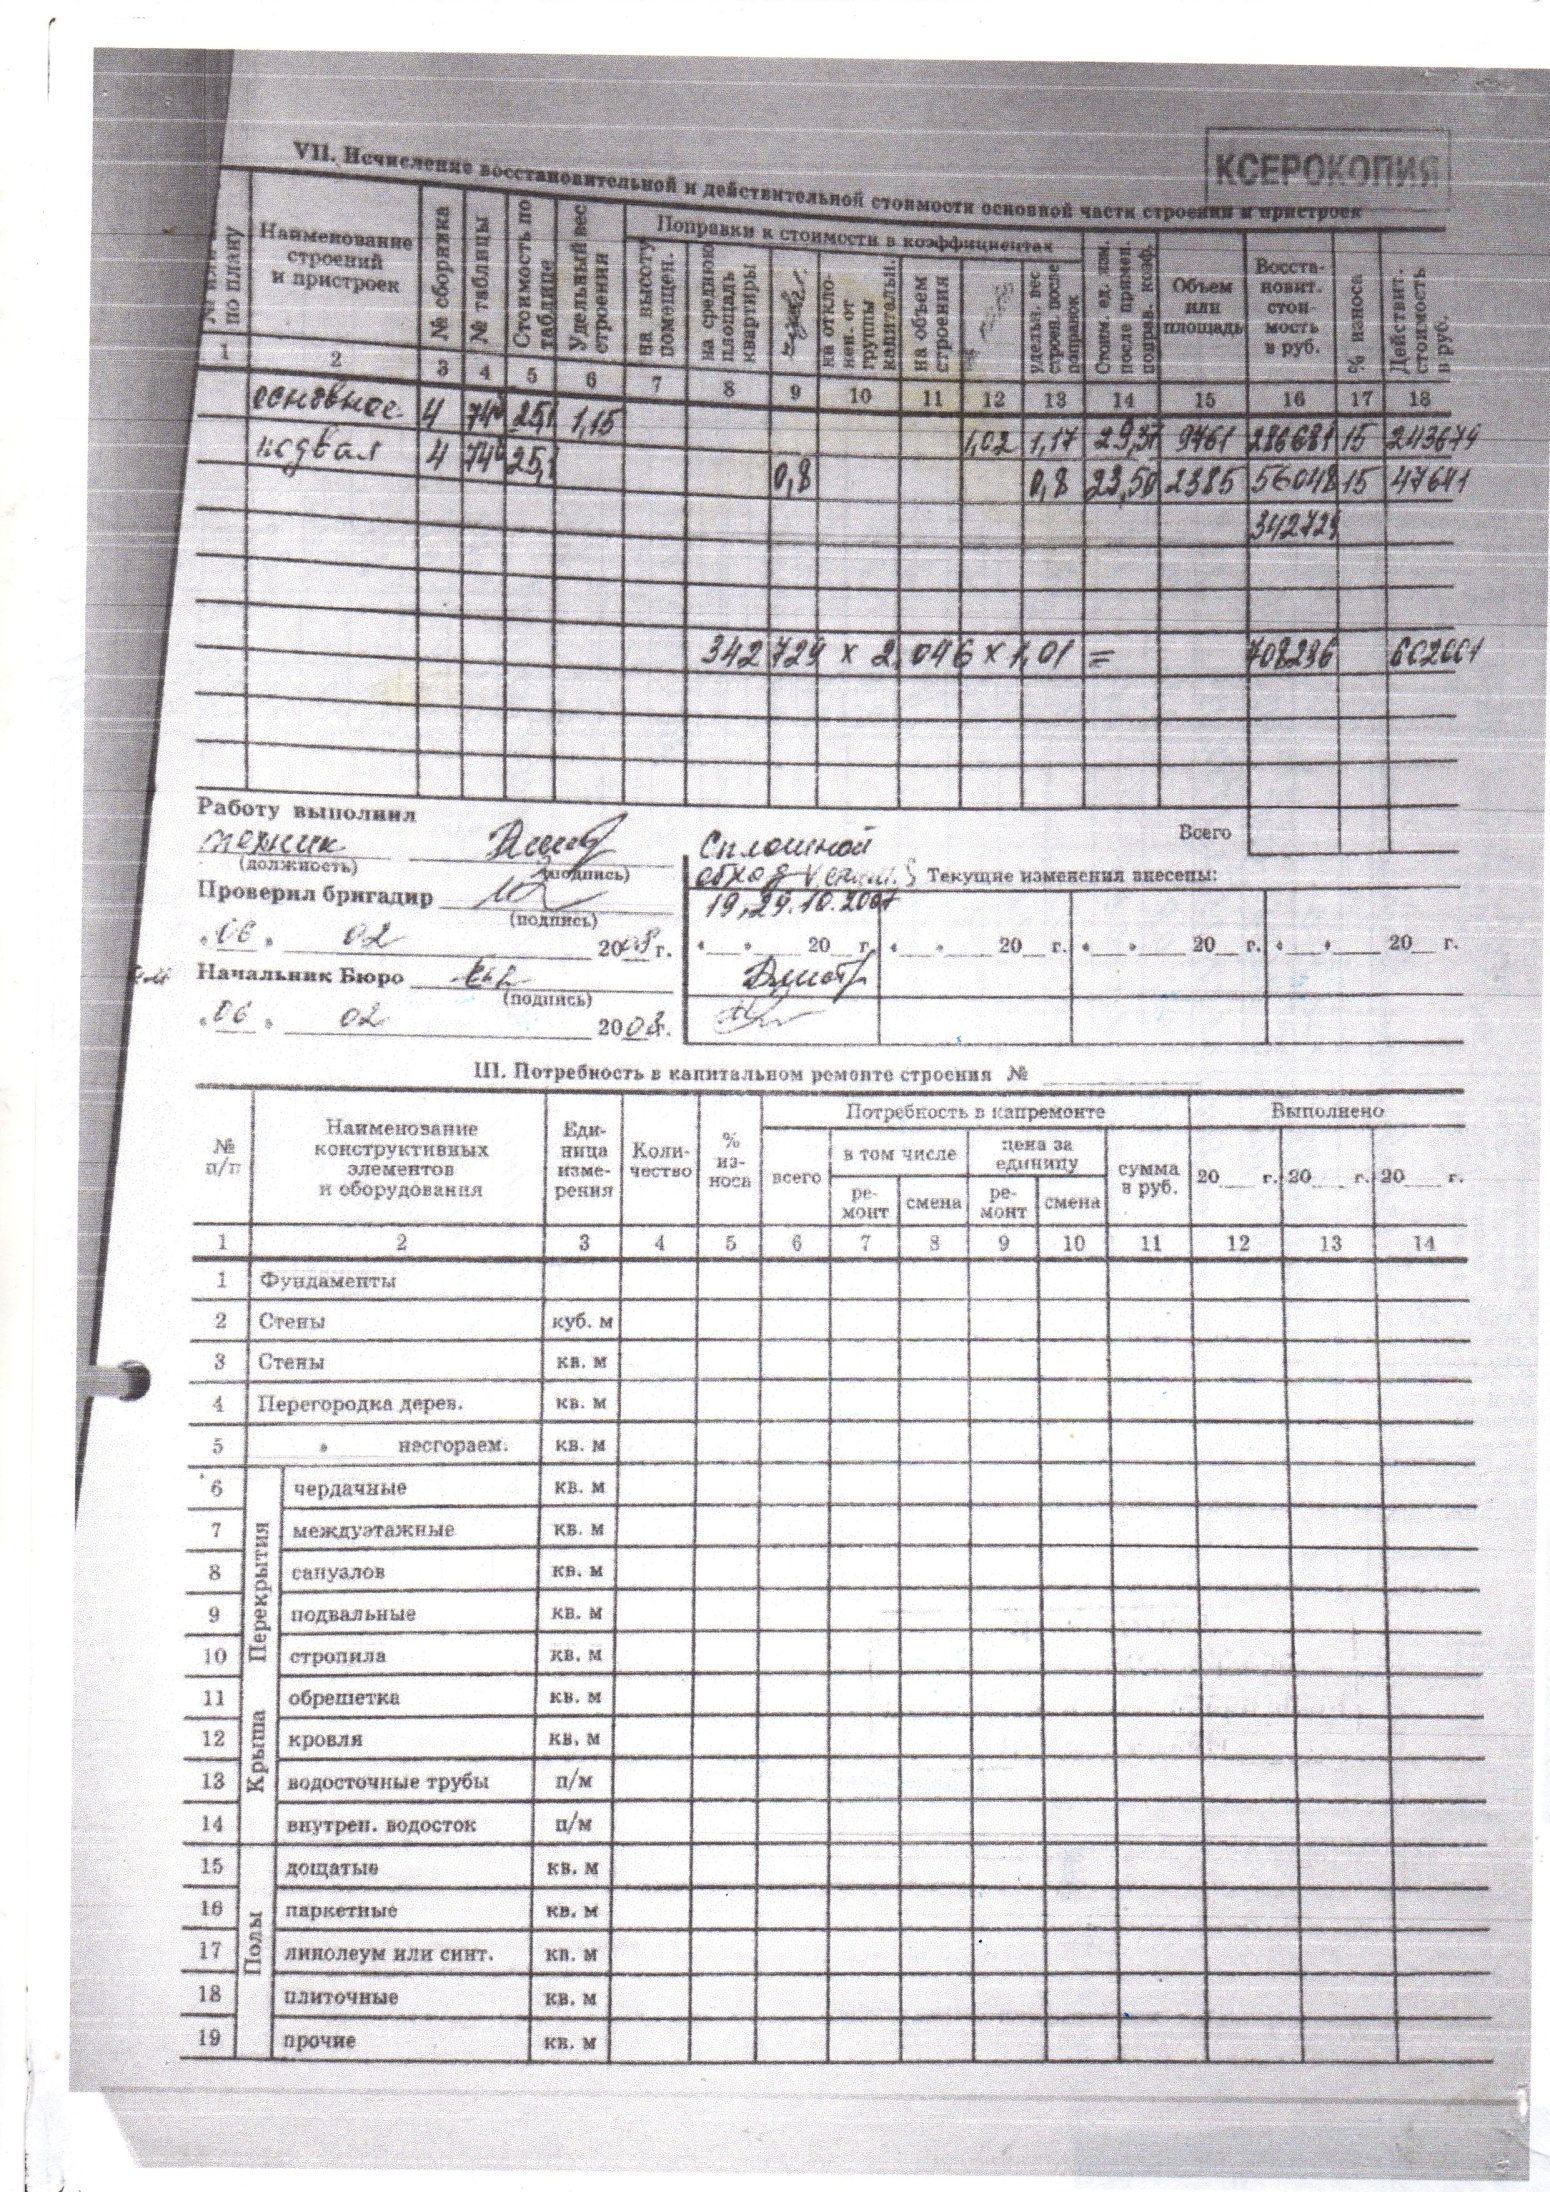 КСЕРОКОПИЯ
VII. Исчисление восстановительной и действительной стоимости основной части строений и пристроек
по плану
Наименование строений и пристроек
№ сборника
№ таблицы
Стоимость по таблице
Удельный вес строения
Поправки к стоимости в коэффициентах
на высоту помещен.
на среднюю площадь квартиры
на откло- нен. от группы капитальн.
на объем строения
удельн. вес строен. после поправок
Стоим. ед. изм. после примен. поправ. коэф.
Объем или площадь
Восста- новит. стои- мость в руб.
% износа
Действит. стоимость в руб.
1 2 3 4 5 6 7 8 9 10 11 12 13 14 15 16 17 18
основное 4 25,1 1,15 1,02 1,17 29,37 9761 286681 15 243679
подвал 4 25,1 0,8 0,8 23,50 2385 56048 15 47641
342729
342729 х 2,046 х 1,01 = 708236 602001
Всего
Работу выполнил
техник
(должность) (подпись)
Проверил бригадир
(подпись)
„06 „ 02 2008 г.
Начальник Бюро
(подпись)
„06 „ 02 2008 г.
Сплошной
обход
Текущие изменения внесены:
19,29.10.2007
« » 20 г. « » 20 г. « » 20 г. « » 20 г.
III. Потребность в капитальном ремонте строения №
№ п/п
Наименование конструктивных элементов и оборудования
Еди- ница изме- рения
Коли- чество
% из- носа
Потребность в капремонте
всего
в том числе
ре- монт
смена
цена за единицу
ре- монт
смена
сумма в руб.
Выполнено
20 г. 20 г. 20 г.
1 2 3 4 5 6 7 8 9 10 11 12 13 14
1 Фундаменты
2 Стены куб. м
3 Стены кв. м
4 Перегородка дерев. кв. м
5 » несгораем. кв. м
Перекрытия
6 чердачные кв. м
7 междуэтажные кв. м
8 санузлов кв. м
9 подвальные кв. м
Крыша
10 стропила кв. м
11 обрешетка кв. м
12 кровля кв. м
13 водосточные трубы п/м
14 внутрен. водосток п/м
Полы
15 дощатые кв. м
16 паркетные кв. м
17 линолеум или синт. кв. м
18 плиточные кв. м
19 прочие кв. м